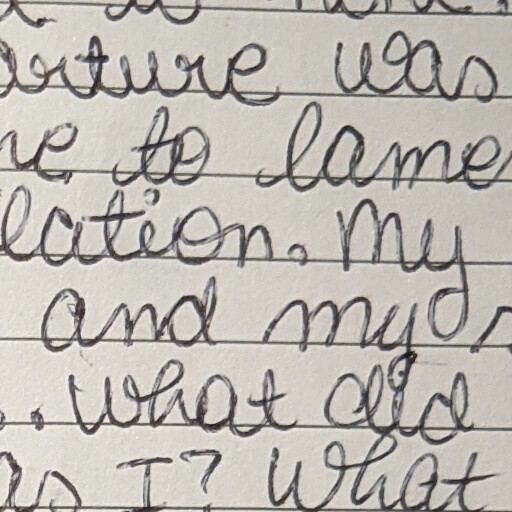 arture was
ne to lame
lation. My
and my
.. What did
as I? What